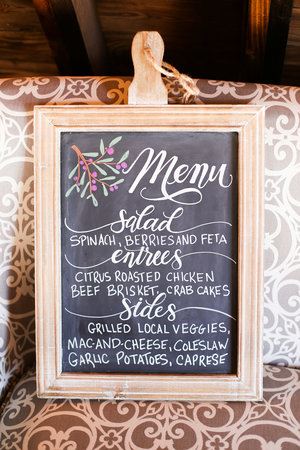 Menu
salad
SPINACH, BERRIES AND FETA
entrees
CITRUS ROASTED CHICKEN
BEEF BRISKET, CRAB CAKES
sides
GRILLED LOCAL VEGGIES,
MAC-AND-CHEESE, COLESLAW
GARLIC POTATOES, CAPRESE